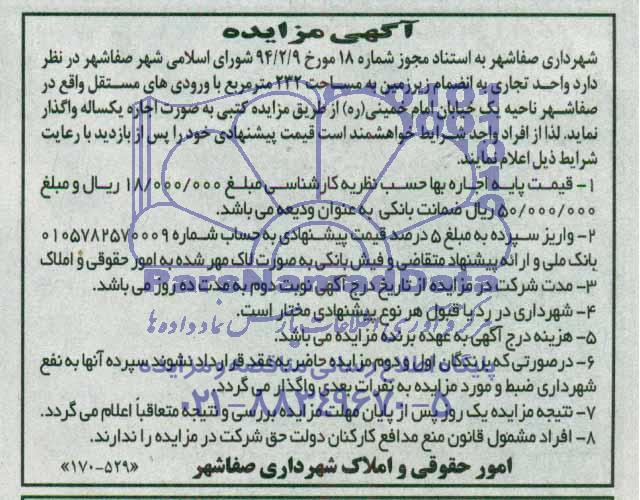 آگهی مزایده
شهرداری صفاشهر به استناد مجوز شماره ۱۸ مورخ ۹۴/۲/۹ شورای اسلامی شهر صفاشهر در نظر
دارد واحد تجاری به انضمام زیرزمین به مساحت ۲۳۲ مترمربع با ورودی های مستقل واقع در
صفاشهر ناحیه یک خیابان امام خمینی(ره) از طریق مزایده کتبی به صورت اجاره یکساله واگذار
نماید. لذا از افراد واجد شرایط خواهشمند است قیمت پیشنهادی خود را پس از بازدید با رعایت
شرایط ذیل اعلام نمایند.
۱- قیمت پایه اجاره بها حسب نظریه کارشناسی مبلغ ۱۸/۰۰۰/۰۰۰ ریال و مبلغ
۵۰/۰۰۰/۰۰۰ ریال ضمانت بانکی به عنوان ودیعه می باشد.
۲- واریز سپرده به مبلغ ۵ درصد قیمت پیشنهادی به حساب شماره ۰۱۰۵۷۸۲۵۷۰۰۰۹
بانک ملی و ارائه پیشنهاد متقاضی و فیش بانکی به صورت لاک مهر شده به امور حقوقی و املاک
۳- مدت شرکت در مزایده از تاریخ درج آگهی نوبت دوم به مدت ده روز می باشد.
۴- شهرداری در رد یا قبول هر نوع پیشنهادی مختار است.
۵- هزینه درج آگهی به عهده برنده مزایده می باشد.
۶- درصورتی که برندگان اول و دوم مزایده حاضر به عقد قرارداد نشوند سپرده آنها به نفع
شهرداری ضبط و مورد مزایده به نفرات بعدی واگذار می گردد.
۷- نتیجه مزایده یک روز پس از پایان مهلت مزایده بررسی و نتیجه متعاقباً اعلام می گردد.
۸- افراد مشمول قانون منع مدافع کارکنان دولت حق شرکت در مزایده را ندارند.
امور حقوقی و املاک شهرداری صفاشهر «۵۲۹-۱۷۰»
ParsNamadData
مرکز فرآوری اطلاعات پارس نماد داده ها
پایگاه اطلاع رسانی مناقصه و مزایده
۰۲۱-۸۸۳۴۹۶۷۰-۵